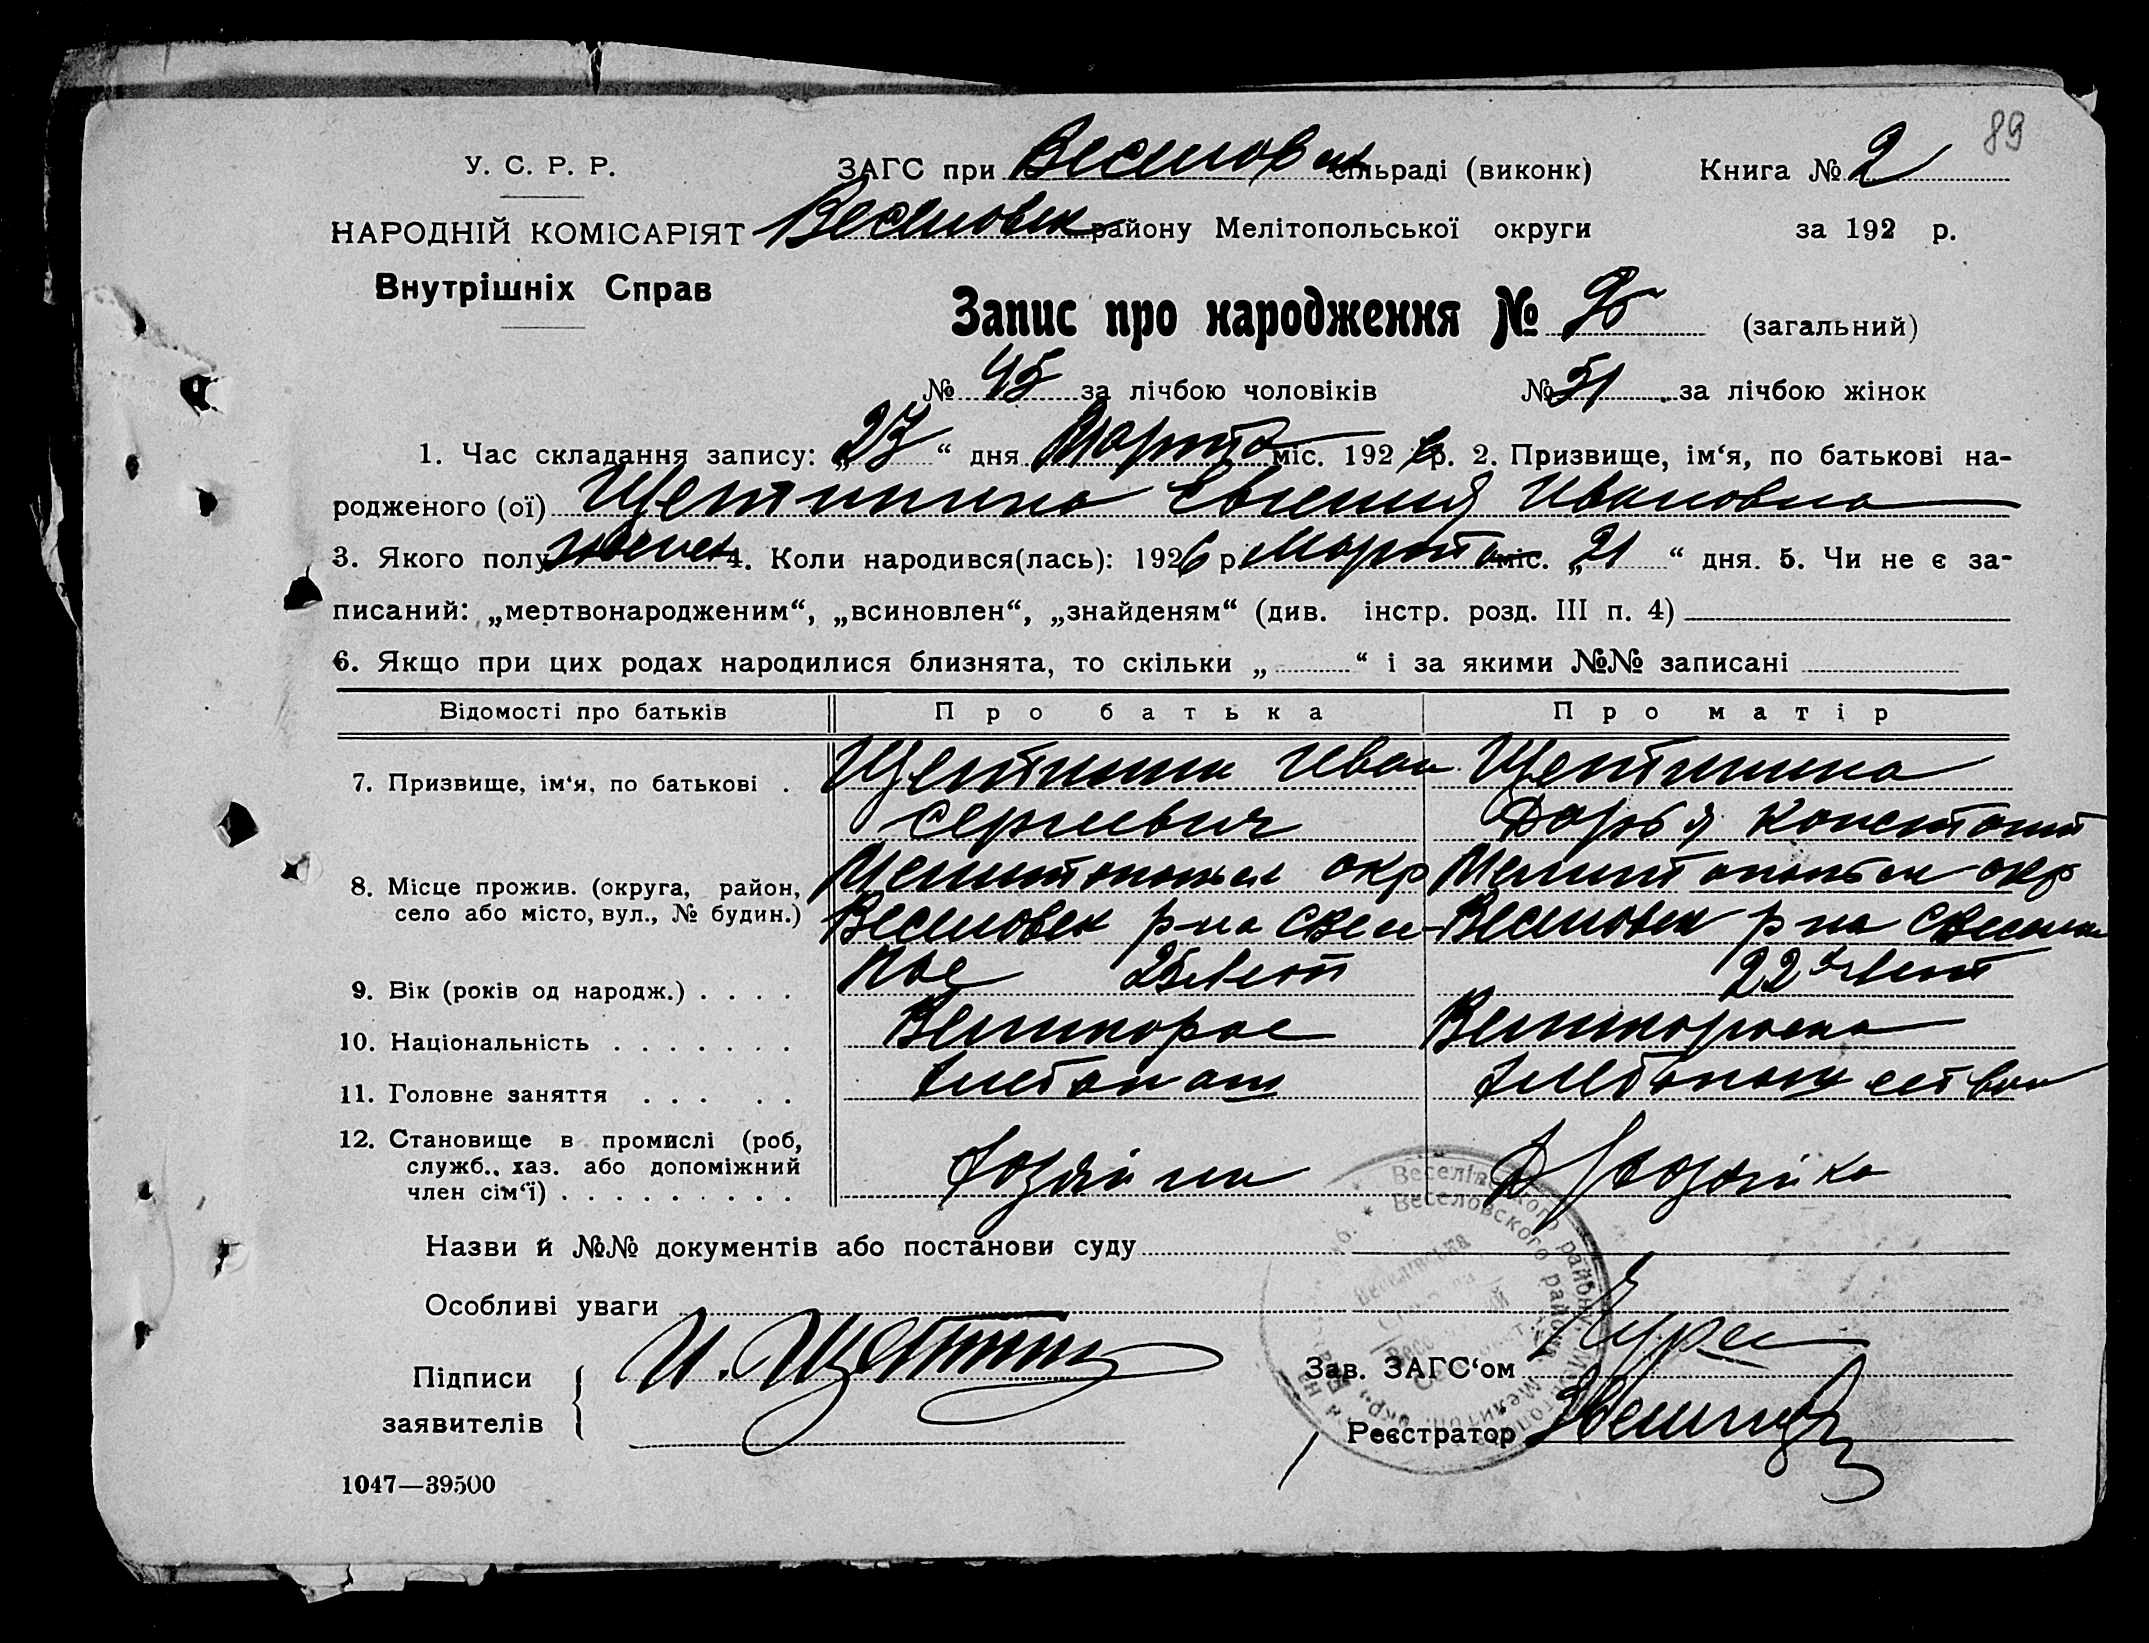 89
У. С. Р. Р.
ЗАГС при Веселов ск сільраді (виконк)
Книга № 2
НАРОДНІЙ КОМІСАРІЯТ
Веселовск району Мелітопольської округи
за 192 р.
Внутрішніх Справ
Запис про народження № (загальний)
№ 45 за лічбою чоловіків № 51 за лічбою жінок
1. Час складання запису: „23“ дня Марта міс. 192 6 р. 2. Призвище, ім‘я, по батькові на-
родженого (ої) Щетинина Евгения Ивановна
3. Якого полу женск 4. Коли народився(лась): 1926 р. Марта міс. „21“ дня. 5. Чи не є за-
писаний: „мертвонародженим“, „всиновлен“, „знайденям“ (див. інстр. розд. III п. 4)
6. Якщо при цих родах народилися близнята, то скільки „ “ і за якими №№ записані
Відомості про батьків Про батька Про матір
7. Призвище, ім‘я, по батькові . Щетинин Иван Щетинина
Сергиевич Дарья Констант
8. Місце прожив. (округа, район, Мелитопольск окр Мелитопольск окр
село або місто, вул., № будин.) Веселовск р-на с Весе Веселовск р на с Весел
9. Вік (років од народж.) . . . . лое 25 лет 22 лет
10. Національність . . . . . . . Великорос Великороска
11. Головне заняття . . . . . хлебопаш хлебопашества
12. Становище в промислі (роб, служб., хаз. або допоміжний член сім‘ї) . . . . . . . . . . хозяин Д/хозяйка
Назви й №№ документів або постанови суду
Особливі уваги
Підписи заявителів И. Щетинин
Зав. ЗАГС‘ом
Реєстратор
Веселівського району, Мелітоп.
Веселовского района, Мелитоп. окр.
1047—39500